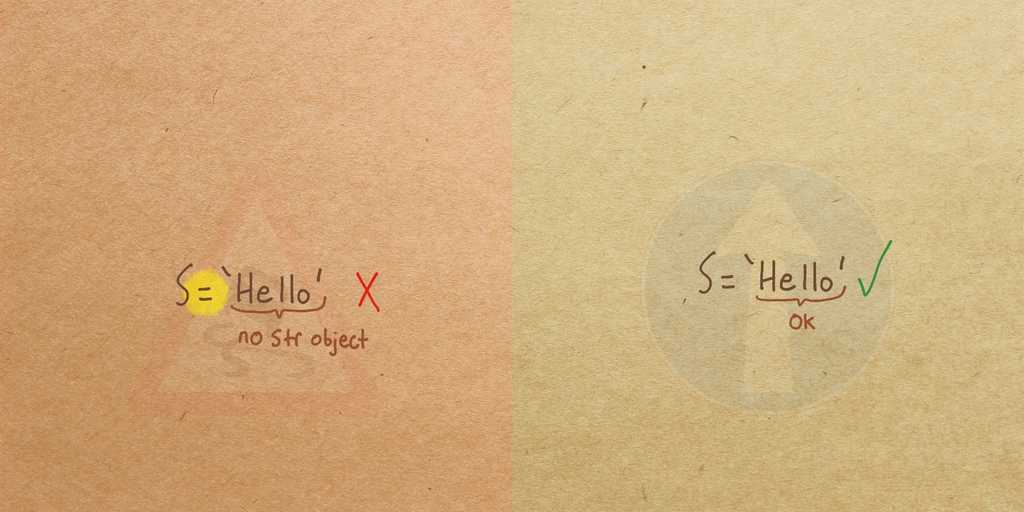 S = `Hello' X
no str object
S = `Hello' ✓
OK